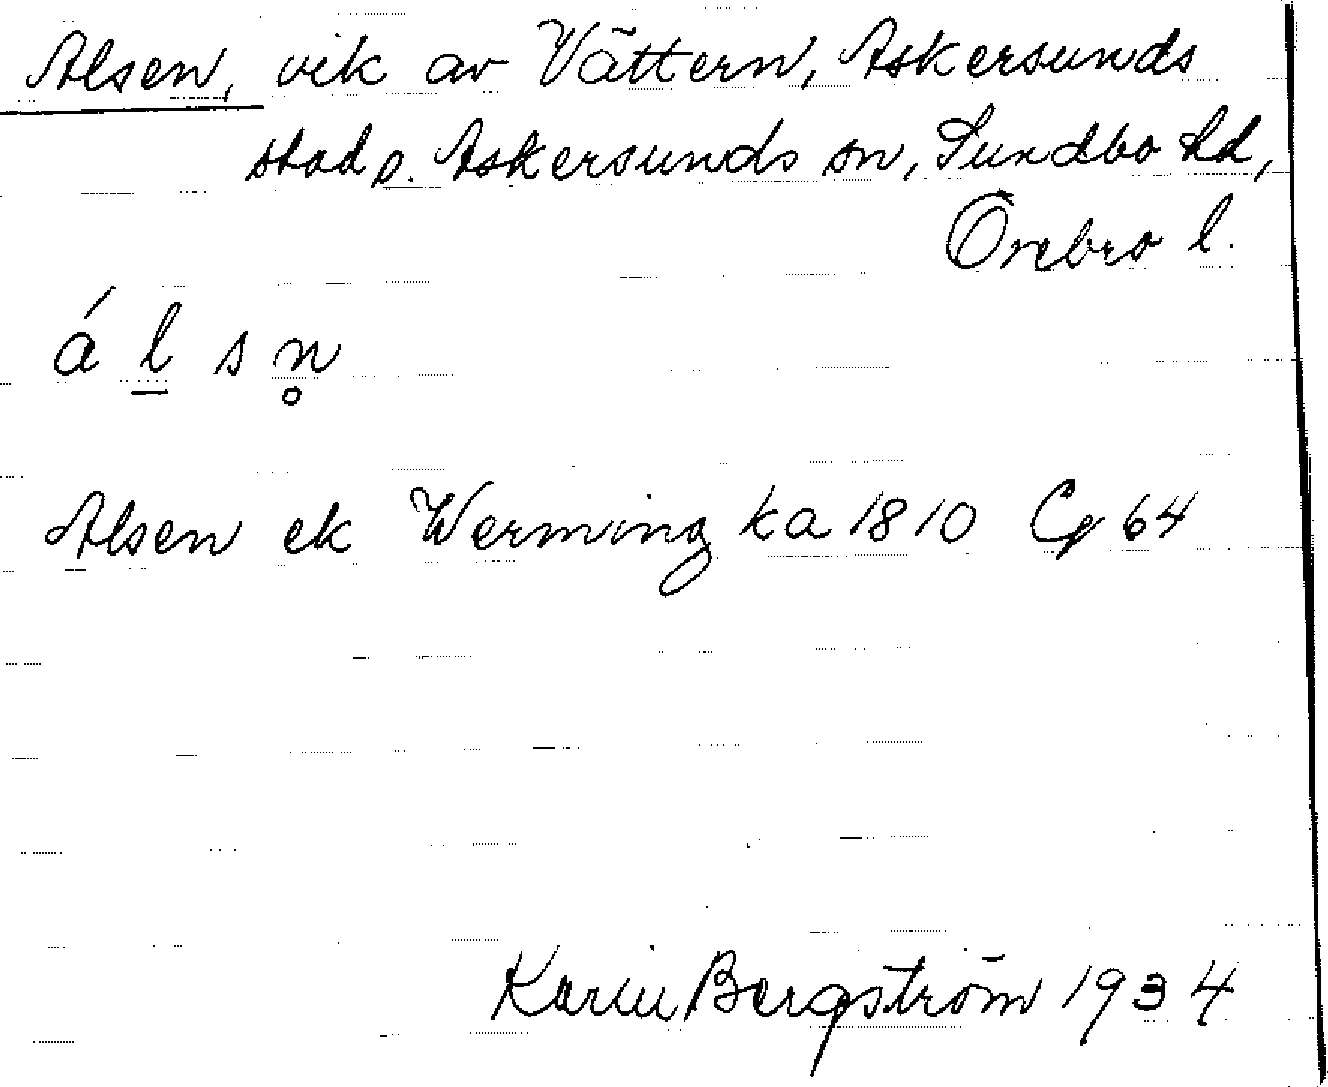 Alsen, vik av Vättern, Askersunds
stad o. Askersunds sn, Sundbo hd,
Örebro l.
á l̲ s n̥
Alsen ek Werming ka 1810 Cg 64
Karin Bergström 1934